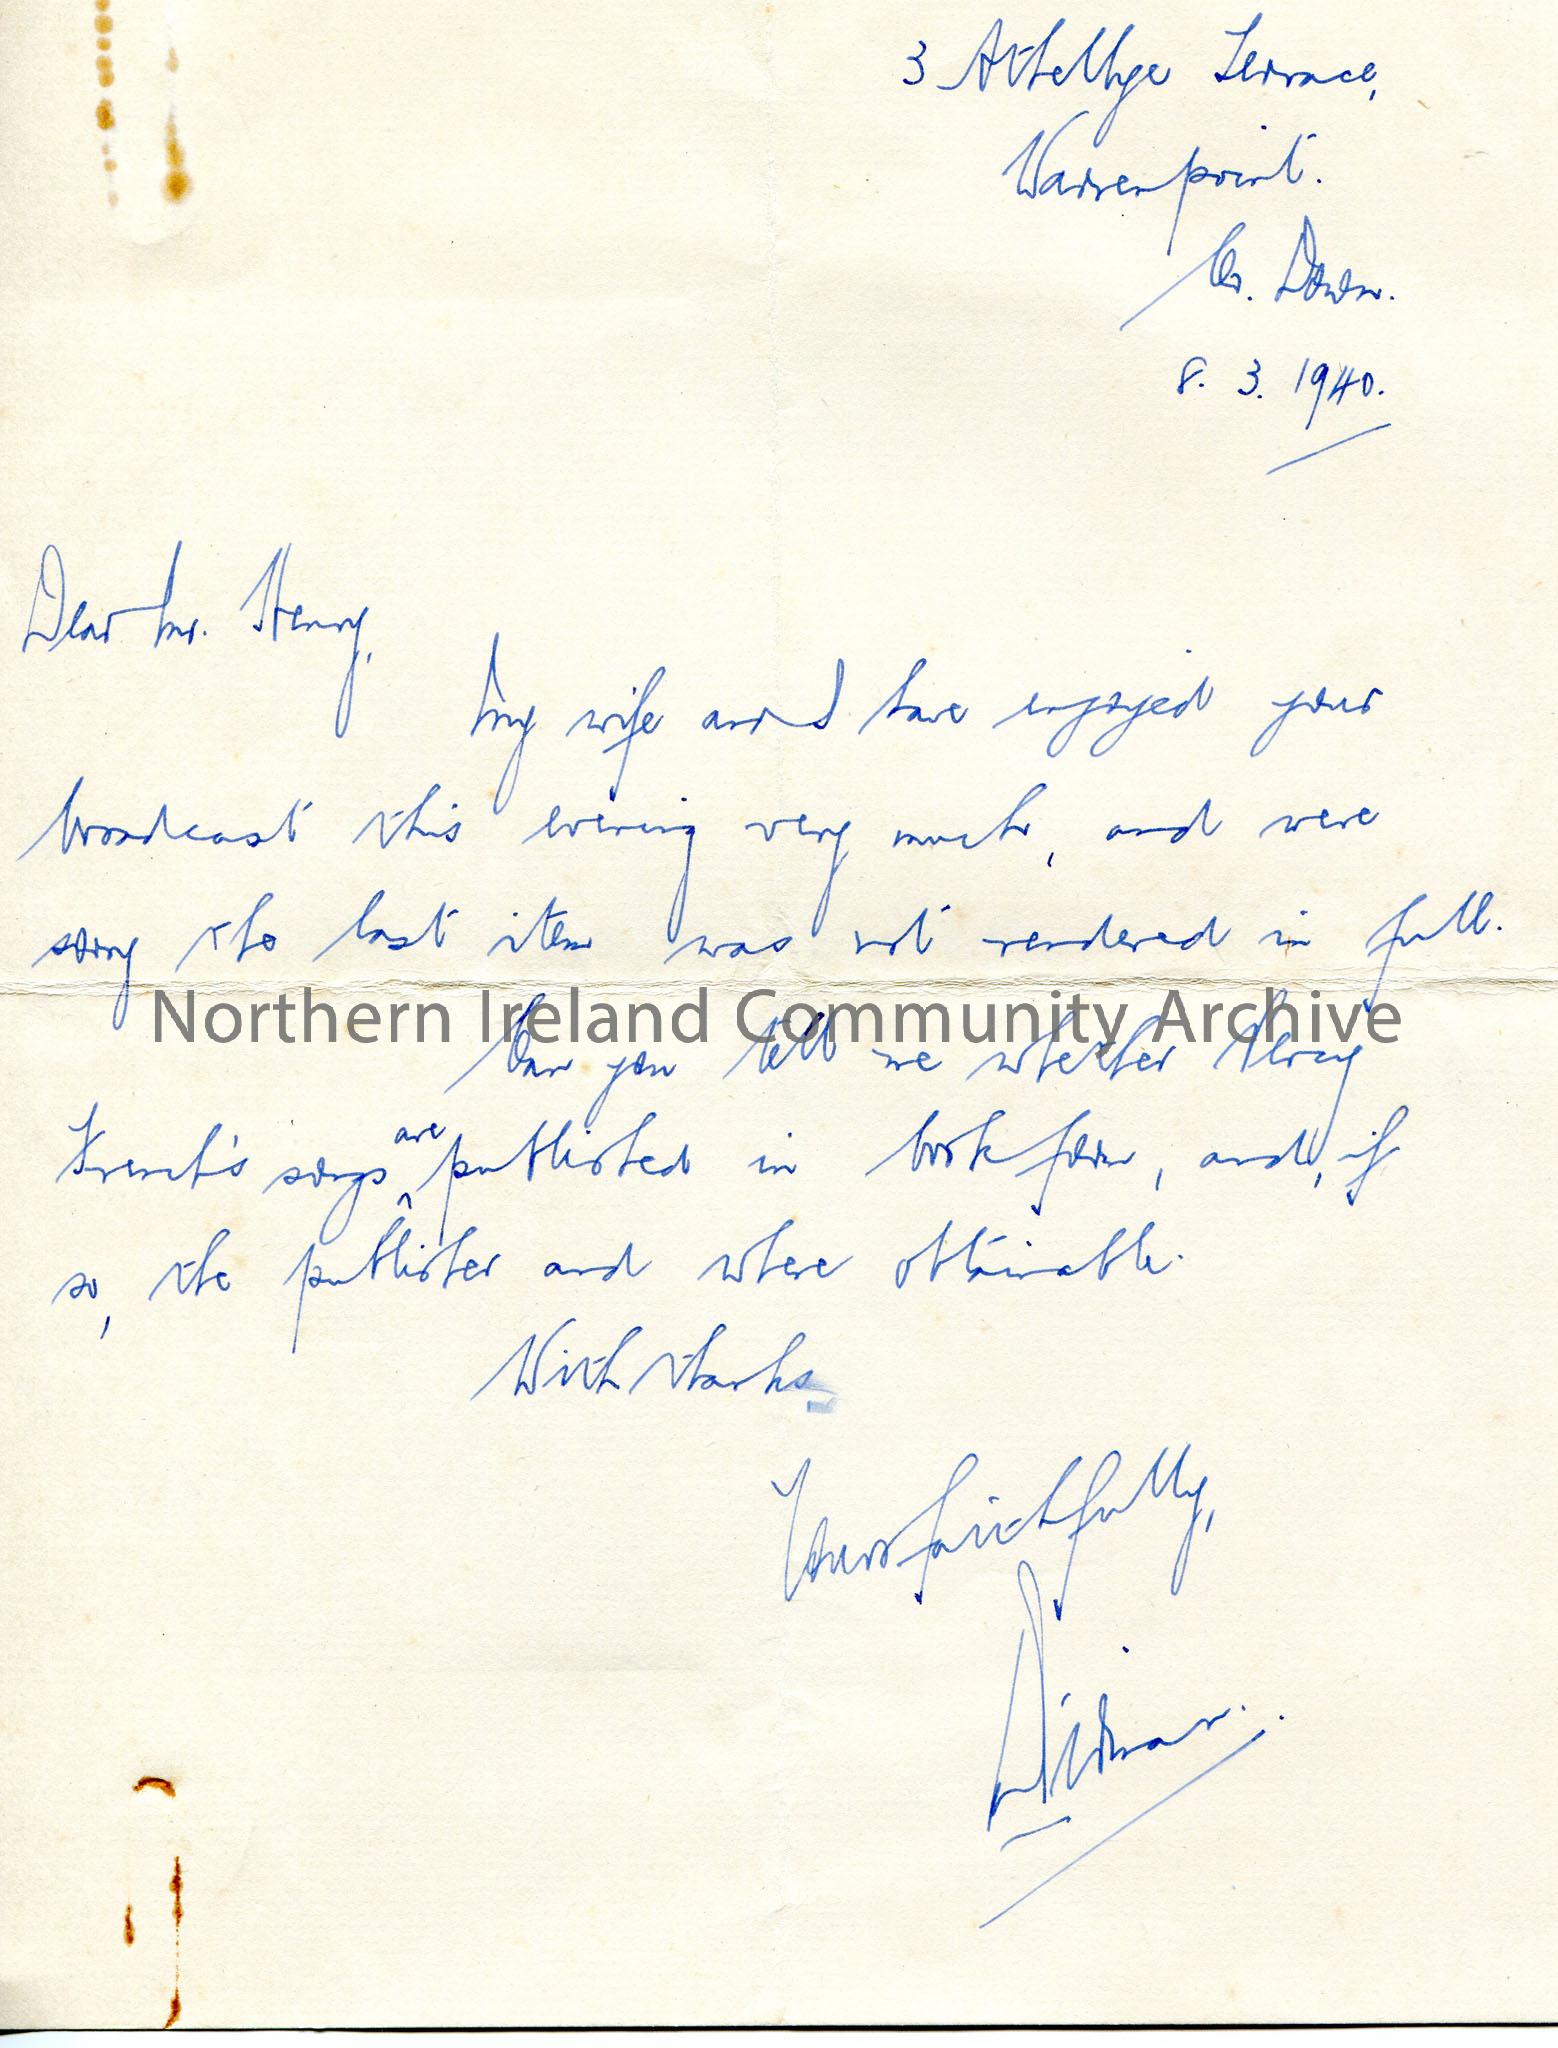 3 Terrace,
Warrenpoint.
Co. Down.
8. 3. 1940.
Dear Mr. Henry,
My wife and I have enjoyed your
broadcast this evening very much, and were
sorry the last item was not rendered in full.
Northern Ireland Community Archive
Can you tell me whether Percy
French's songs are published in book form, and, if
so, the publisher and where obtainable.
With thanks,
Yours faithfully,